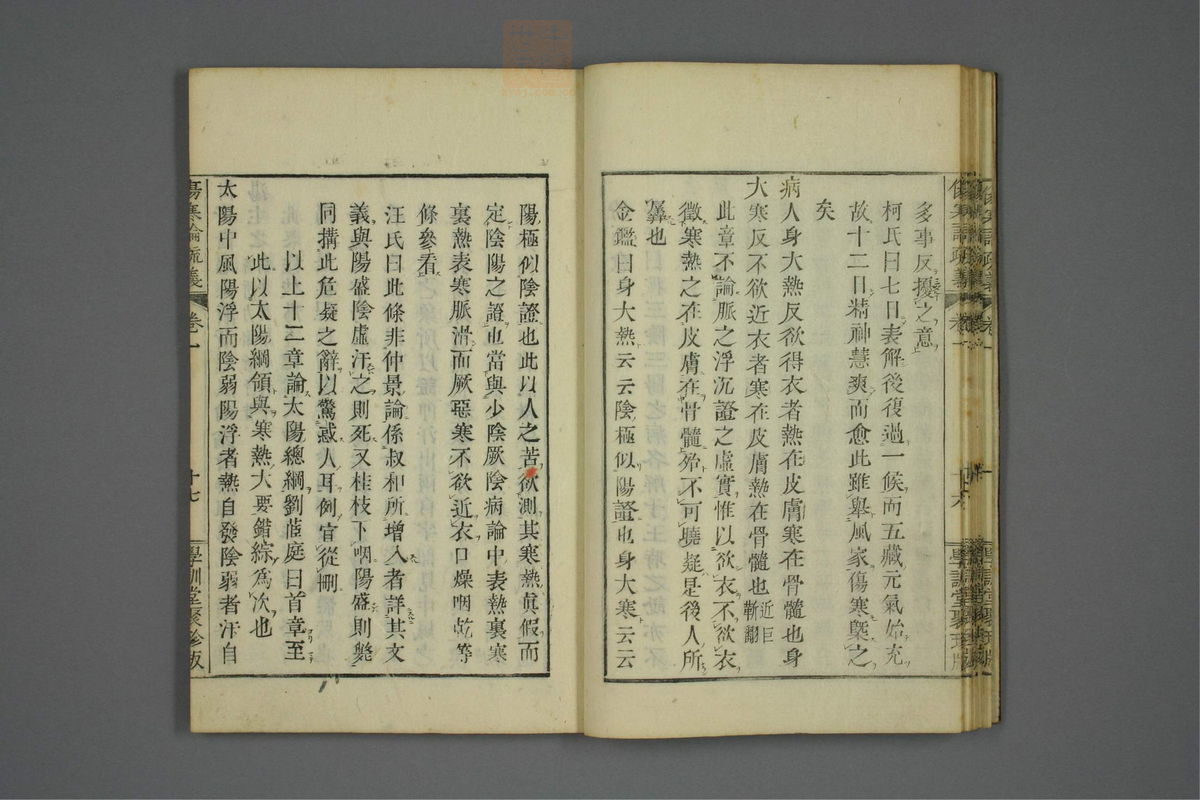 多事反擾之意
柯氏曰七日表解後復過一候而五藏元氣始充
故十二日精神慧爽而愈此雖舉風家傷寒槩之
矣
病人身大熱反欲得衣者熱在皮膚寒在骨髓也身
大寒反不欲近衣者寒在皮膚熱在骨髓也近巨靳翻
此章不論脈之浮沉證之虛實惟以欲衣不欲衣
徵寒熱之在皮膚在骨髓殆不可曉疑是後人所
彙也
金鑑曰身大熱云云陰極似陽證也身大寒云云
十六
陽極似陰證也此以人之苦欲測其寒熱眞假而
定陰陽之證也當與少陰厥陰病論中表熱裏寒
裏熱表寒脈滑而厥惡寒不欲近衣口燥咽乾等
條參看
汪氏曰此條非仲景論係叔和所增入者詳其文
義與陽盛陰虛汗之則死又桂枝下咽陽盛則斃
同搆此危疑之辭以驚惑人耳例宜從刪
以上十二章論太陽總綱劉茝庭曰首章至
此以太陽綱領與寒熱大要錯綜為次也
太陽中風陽浮而陰弱陽浮者熱自發陰弱者汗自
傷寒論疏義
卷一
十七
學訓堂聚珍版